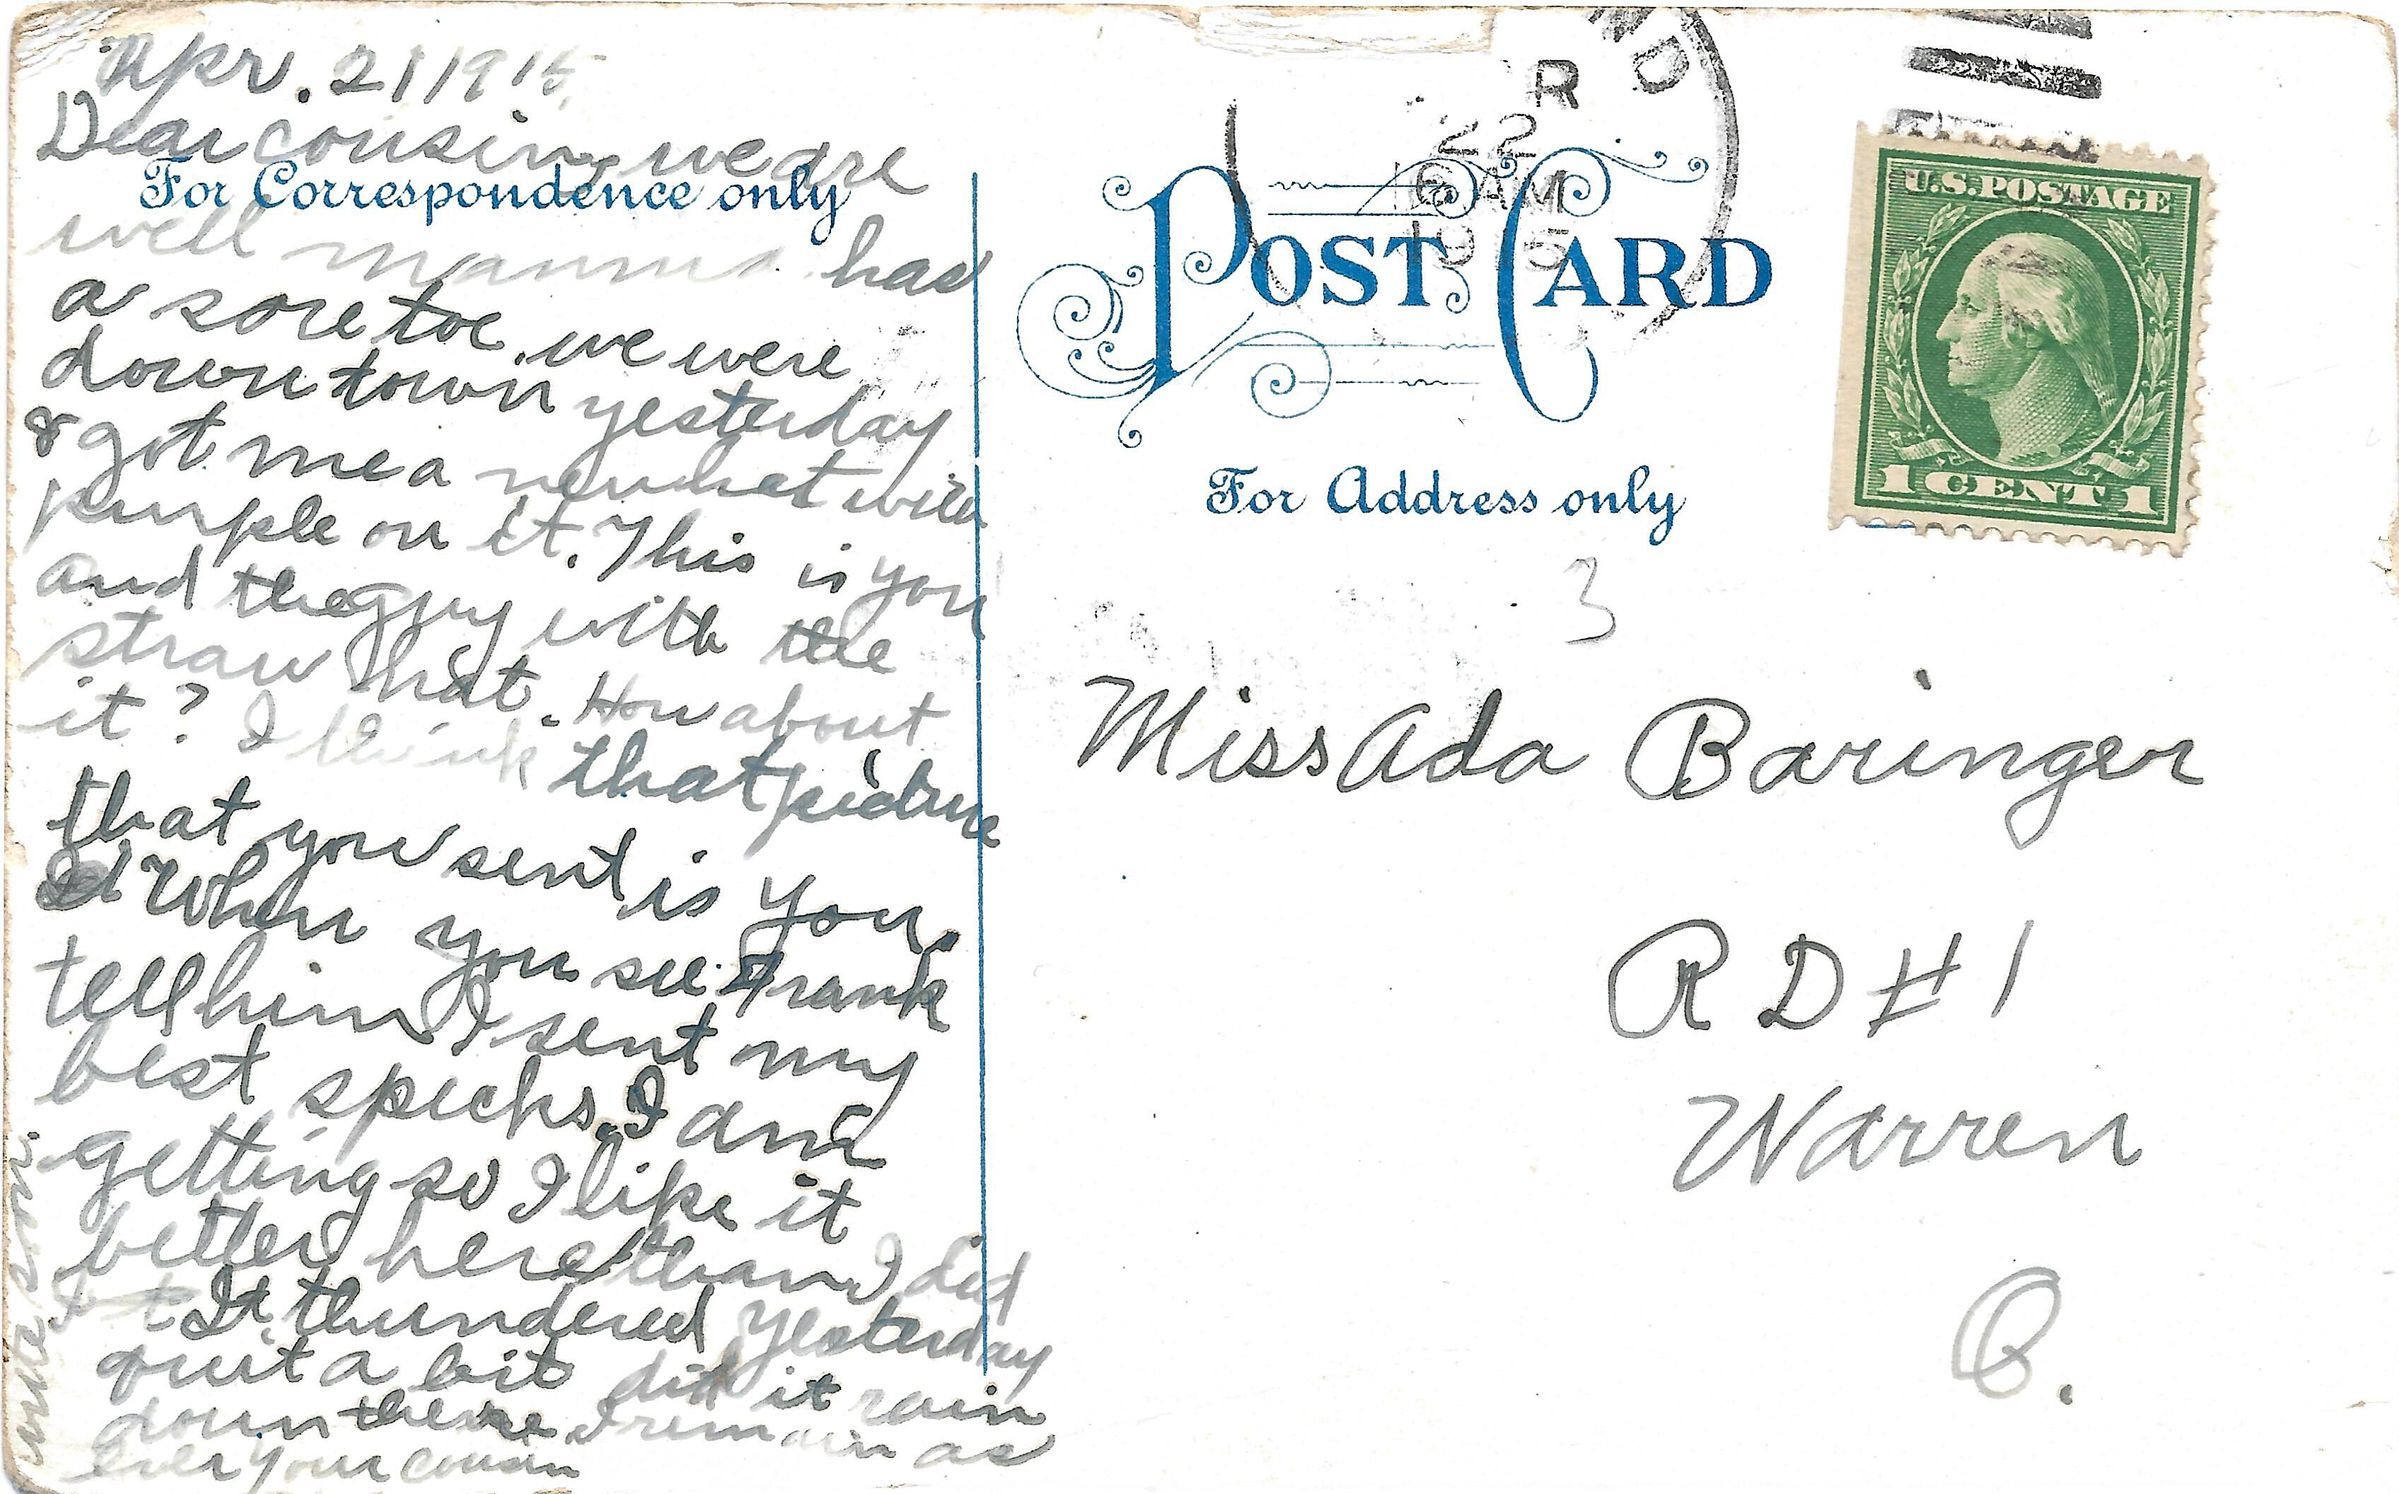 Apr. 21 1915
Dear cousin, we are
For Correspondence only
well mamma had
a sore toe. we were
down town yesterday
& got me a new hat with
purple on it. This is you
and the guy with the
straw hat. How about
it? I think that picture
that you sent is you.
When you see Frank
tell him I sent my
best specks. I am
getting so I like it
better here than I did
It thundered yesterday
quit a bit did it rain
down there I remain as
ever your cousin
write soon.
ND
R
22
6 AM
1915
POST CARD
For Address only
U.S. POSTAGE
1 CENT 1
3
Miss Ada Baringer
R D # 1
Warren
O.